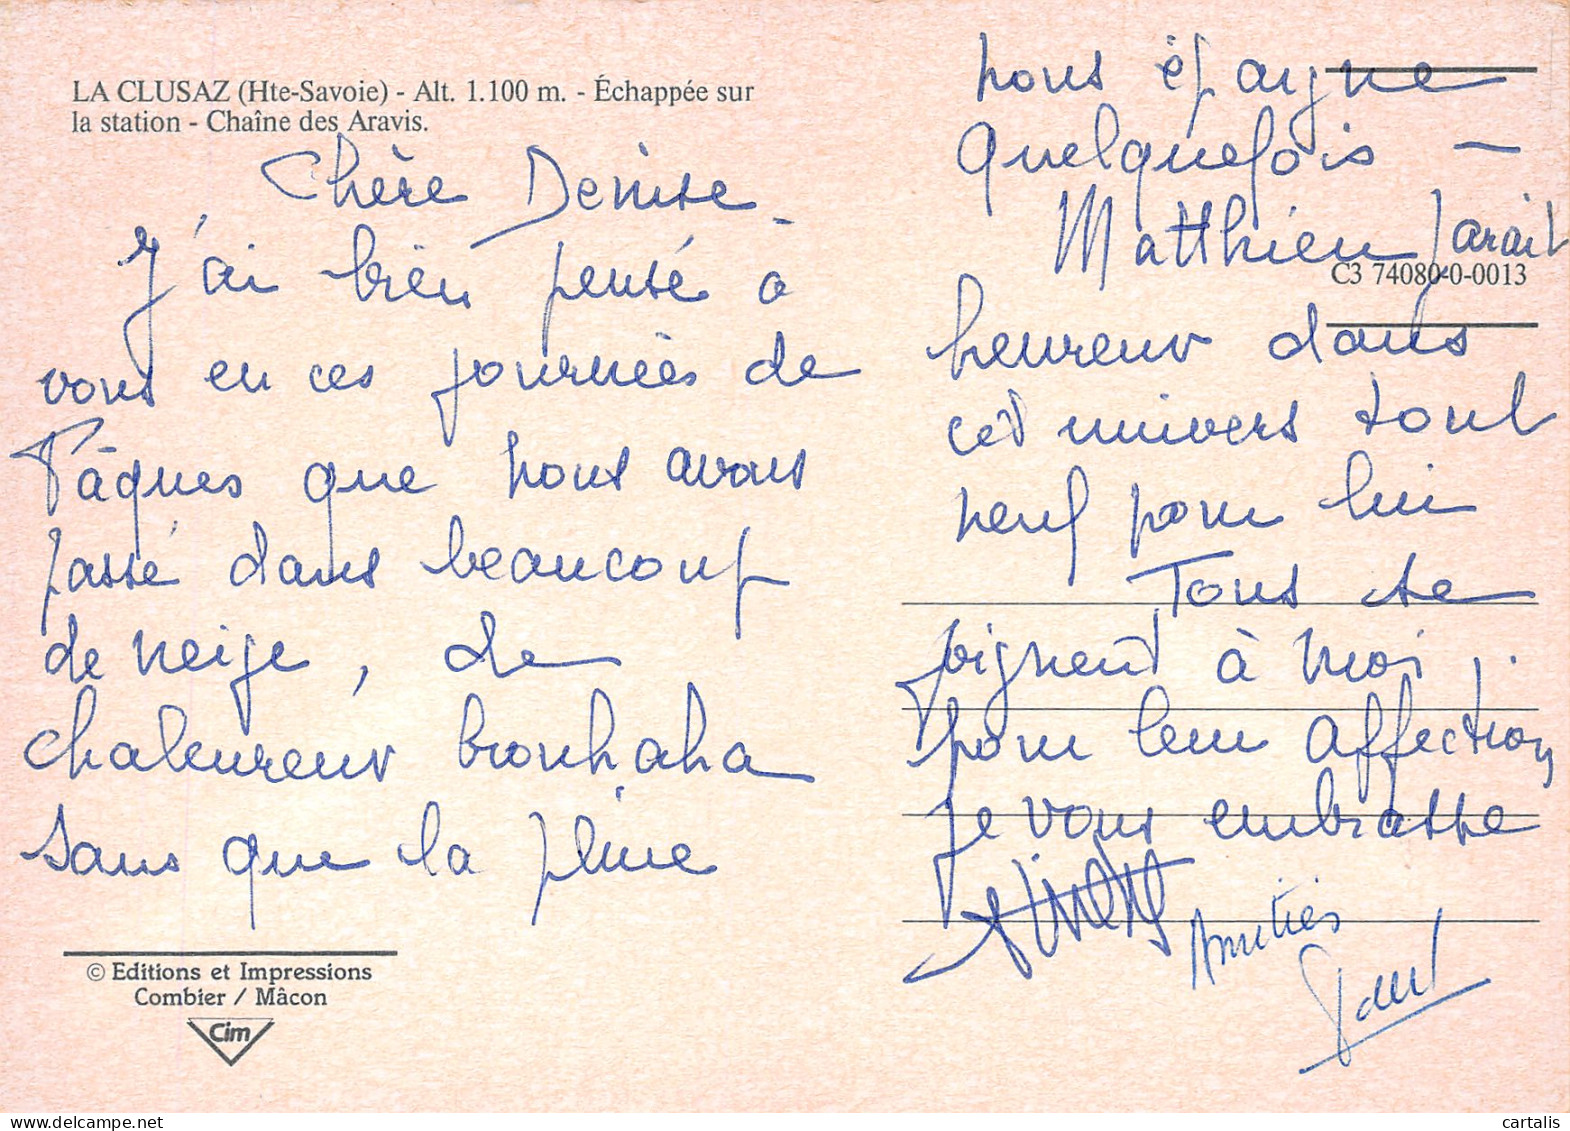 LA CLUSAZ (Hte-Savoie) - Alt. 1.100 m. - Échappée sur
la station - Chaîne des Aravis.
Chère Denise
J'ai bien pensé à
vous en ces journées de
Pâques que nous avons
passé dans beaucoup
de neige, de
chaleureux brouhaha
sans que la pluie
© Editions et Impressions
Combier / Mâcon
Cim
nous épargne
quelquefois -
Matthieu paraît
C3 74080-0-0013
heureux dans
cet univers tout
neuf pour lui
Tous se
joignent à moi
pour leur affection,
je vous embrasse
Amitiés
Paul
cartalis
www.delcampe.net